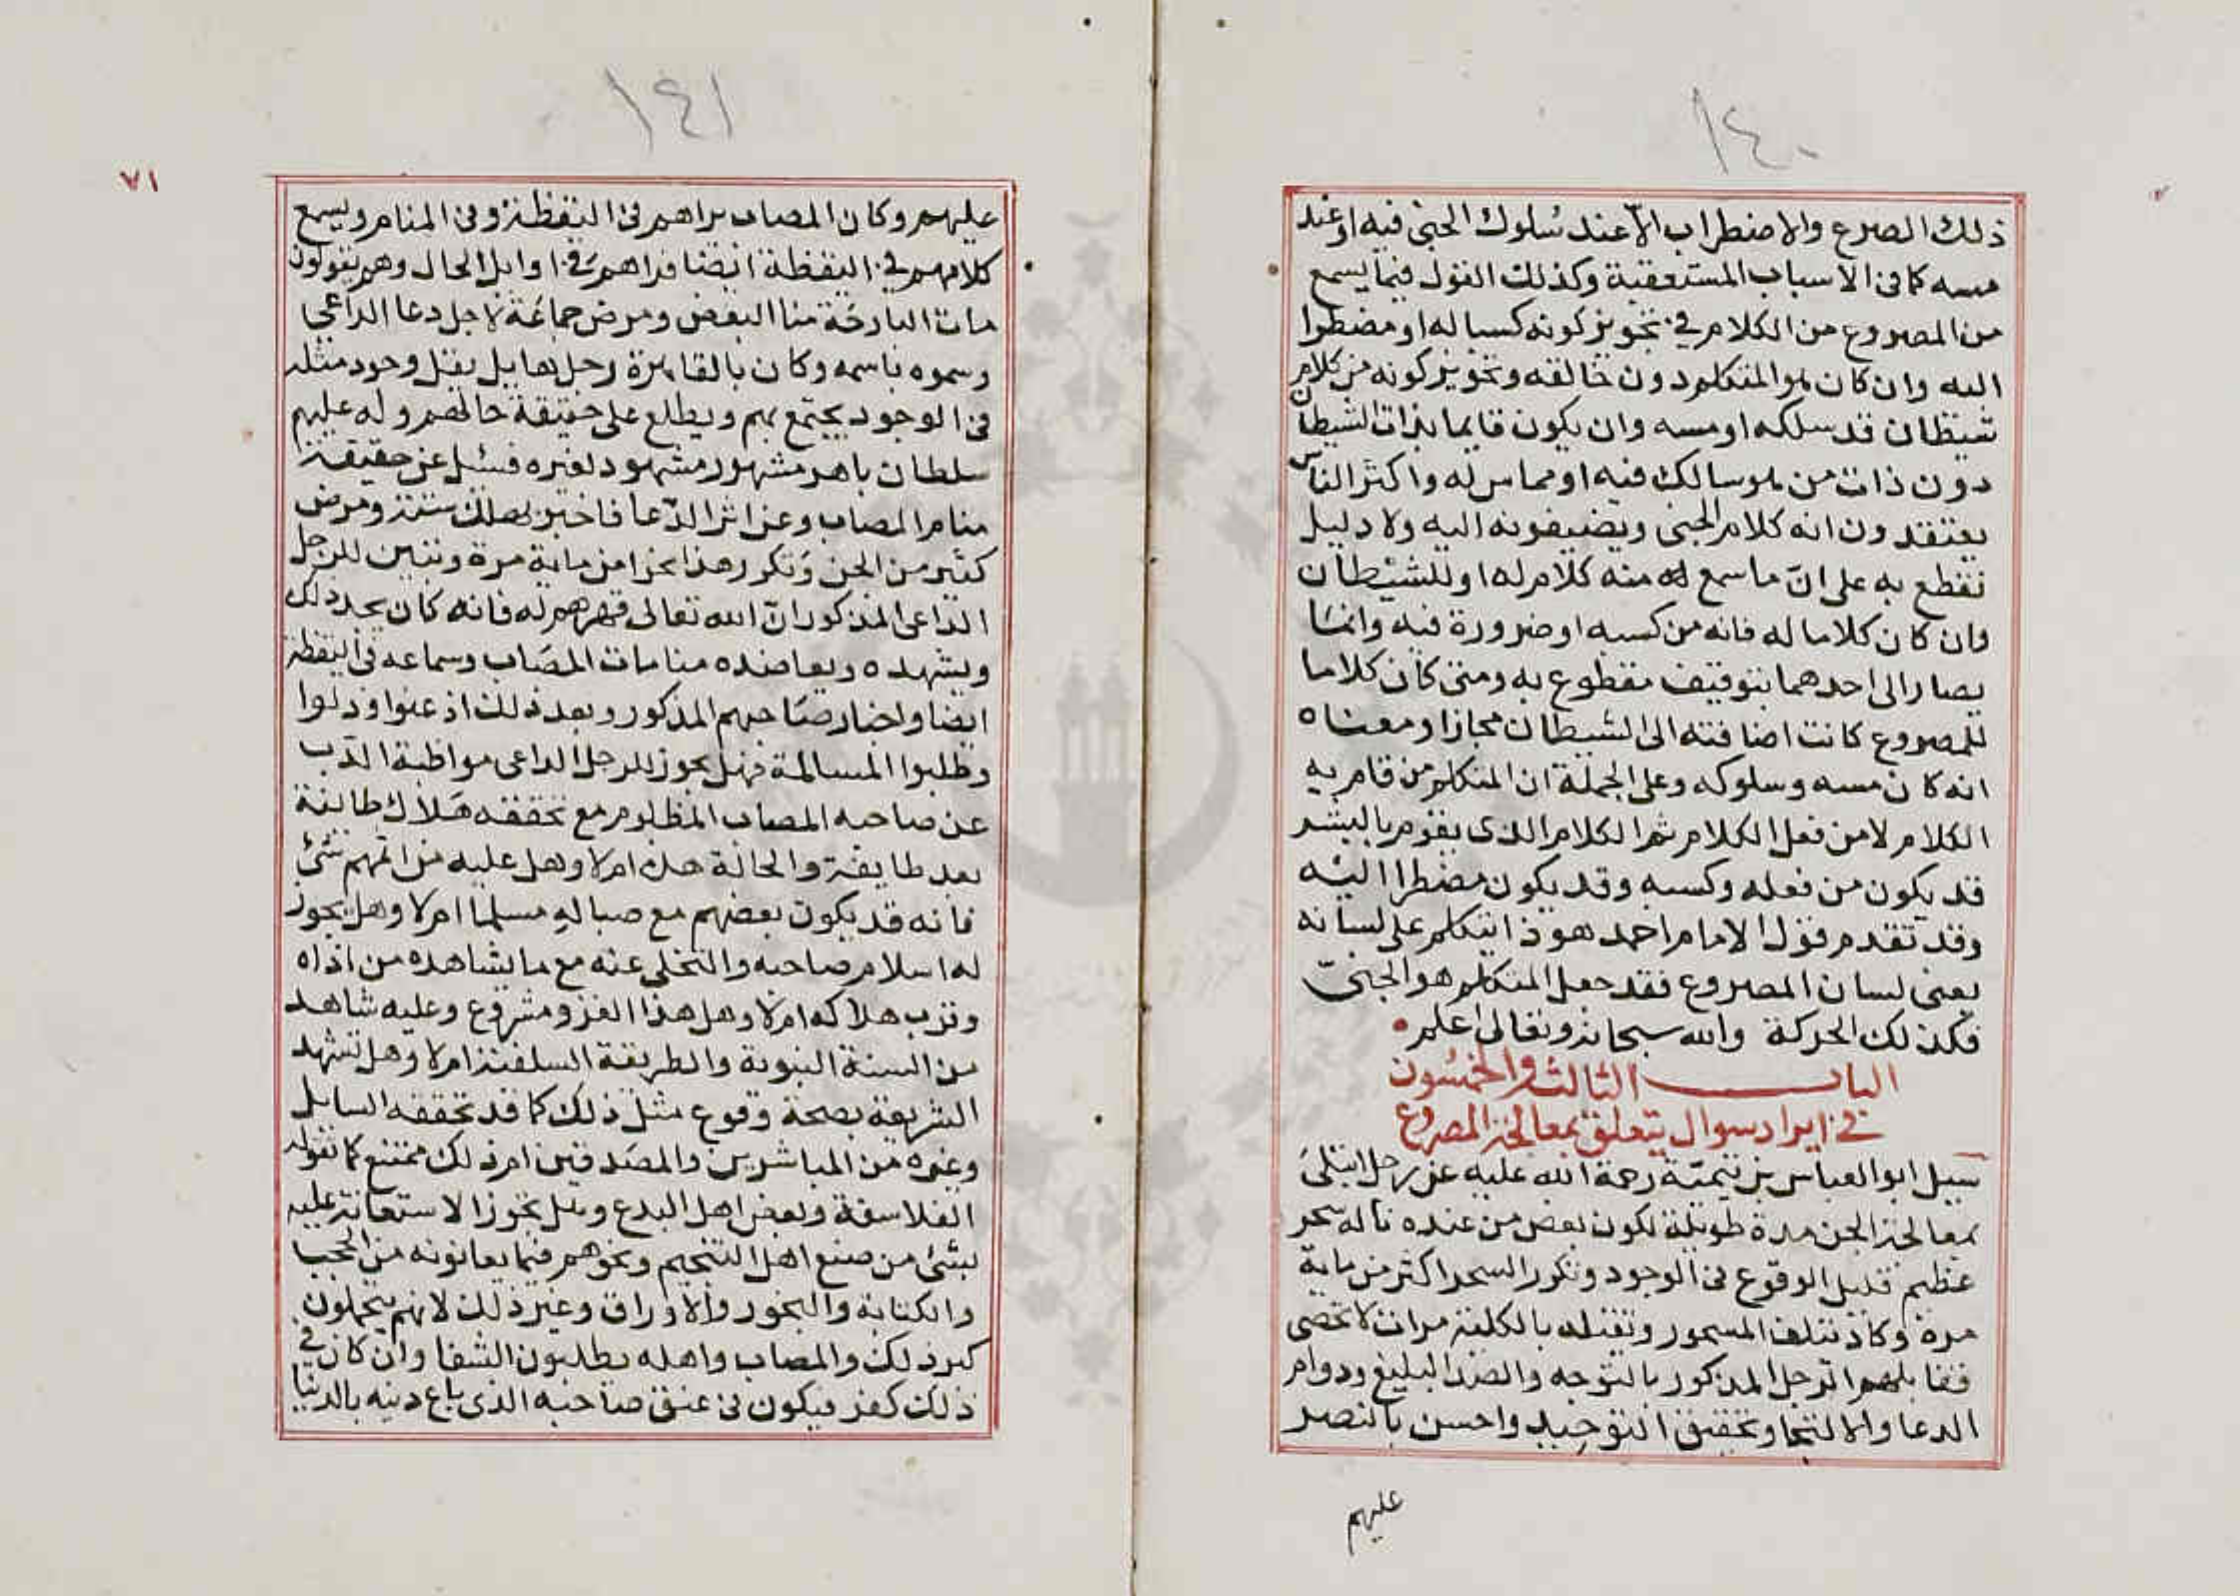 ١٤٠
ذلك الصرع والاضطراب الّا عند سُلوك الجنى فيه او عند
مسه كما فى الاسباب المستعقبة وكذلك القول فيما يسمع
من المصروع من الكلام في تجويز كونه كسبا له او مضطرا
اليه وان كان هو المتكلم دون خالقه وتجويز كونه من كلام
شيطان قد سلكه او مسه وان يكون قايما بذات الشيطان
دون ذات من هو سالك فيه او مماس له واكثر الناس
يعتقدون انه كلام الجنى ويضيفونه اليه ولا دليل
نقطع به على انّ ما سمع منه كلام له او للشيطان
وان كان كلاما له فانه من كسبه او ضرورة فيه وانما
يصار الى احدهما بتوقيف مقطوع به ومتى كان كلاما
للمصروع كانت اضافته الى الشيطان مجازا ومعناه
انه كان مسه وسلوكه وعلى الجملة ان المتكلم من قام به
الكلام لا من فعل الكلام ثم الكلام الذى يقوم بالبشر
قد يكون من فعله وكسبه وقد يكون مضطرا اليه
وقد تقدم قول الامام احمد هو ذا يتكلم على لسانه
يعنى لسان المصروع فقد جعل المتكلم هو الجنىّ
فكذلك الحركة والله سبحانه وتعالى اعلم
البابــــ الثالث والخمسون
في ايراد سوال يتعلق بمعالجة المصروع
سيل ابو العباس بن تيميّة رحمة الله عليه عن رجل ابتلى
بمعالجة الجن مدة طويلة لكون بعض من عنده ناله سحر
عظيم قليل الوقوع فى الوجود وتكرر السحر اكثر من ماية
مرة وكاد يتلف المسحور ويقتله بالكلية مرات لا تحصى
فقابلهم الرجل المذكور بالتوجه والصد البليغ ودوام
الدعا والالتجا وتحقيق التوحيد واحسن بالنصر
عليهم
١٤١
٧١
عليهم وكان المصاب يراهم فى اليقظة وفى المنام ويسمع
كلامهم في اليقظة ايضا فراهم في اوايل الحال وهم يقولون
مات البارحة منا البعض ومرض جماعة لاجل دعا الداعي
وسموه باسمه وكان بالقاهرة رجل هايل يقل وجود مثله
فى الوجود يجتمع بهم ويطلع على حقيقة حالهم وله عليهم
سلطان باهر مشهور مشهود لغيره فسئل عن حقيقة
منام المصاب وعن اثر الدّعا فاخبر بهلاك ستة ومرض
كثير من الجن وتكرر هذا نحوا من ماية مرة وتبين للرجل
الداعى المذكور انّ الله تعالى قهرهم له فانه كان يجد ذلك
ويشهده ويعاضده منامات المصاب وسماعه فى اليقظة
ايضا واخبار صاحبهم المذكور وبعد ذلك اذعنوا وذلوا
وطلبوا المسالمة فهل يجوز للرجل الداعى مواظبة الذب
عن صاحبه المصاب المظلوم مع تحققه هلاك طائفة
بعد طايفة والحالة هذه ام لا وهل عليه من اثمهم شئ
فانه قد يكون بعضهم مع صياله مسلما ام لا وهل يجوز
له اسلام صاحبه والتخلى عنه مع ما يشاهده من اذاه
وقرب هلاكه ام لا وهل هذا الغزو مشروع وعليه شاهد
من السنة النبوية والطريقة السلفية ام لا وهل تشهد
الشريعة بصحة وقوع مثل ذلك كما قد تحققه السايل
وغيره من المباشرين والمصدقين ام ذلك ممتنع كما تقوله
الفلاسفة وبعض اهل البدع وهل تجوز الاستعانة عليه
بشئ من صنع اهل التنجيم ونحوهم فيما يعانونه من الحجب
والكتابة والبخور والاوراق وغير ذلك لانهم يتحملون
كبر ذلك والمصاب واهله يطلبون الشفا وان كان في
ذلك كفر فيكون فى عنق صاحبه الذى باع دينه بالدنيا